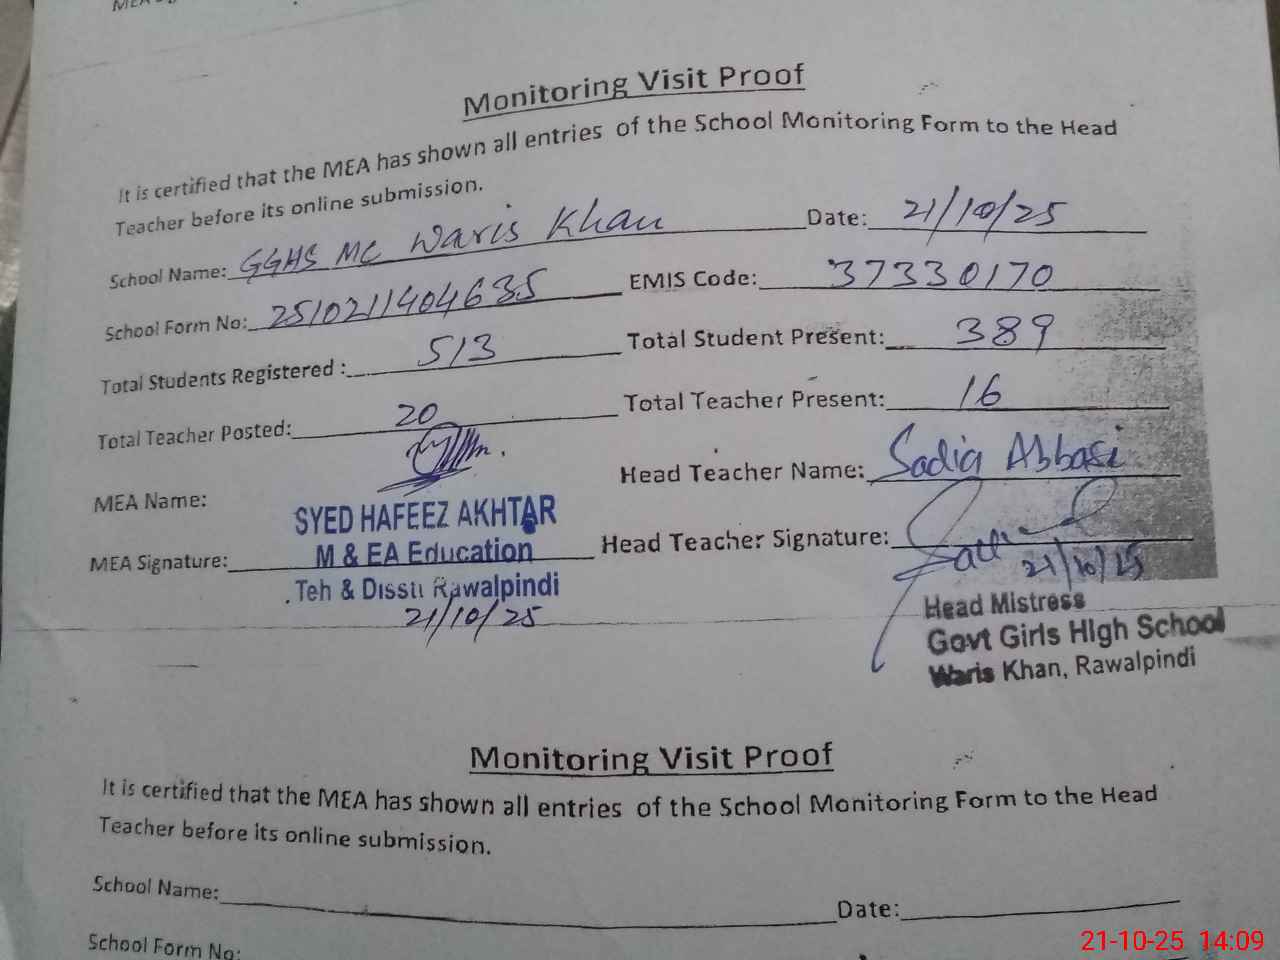 Monitoring Visit Proof
It is certified that the MEA has shown all entries of the School Monitoring Form to the Head
Teacher before its online submission.
School Name: GGHS MC Waris Khan Date: 21/10/25
School Form No: 2510211404635 EMIS Code: 37330170
Total Students Registered : 513 Total Student Present: 389
Total Teacher Posted: 20 Total Teacher Present: 16
MEA Name: Head Teacher Name: Sadia Abbasi
SYED HAFEEZ AKHTAR
MEA Signature: M & EA Education Head Teacher Signature:
Teh & Disstt Rawalpindi
21/10/25
21/10/25
Head Mistress
Govt Girls High School
Waris Khan, Rawalpindi
Monitoring Visit Proof
It is certified that the MEA has shown all entries of the School Monitoring Form to the Head
Teacher before its online submission.
School Name: Date:
School Form No:
21-10-25 14:09